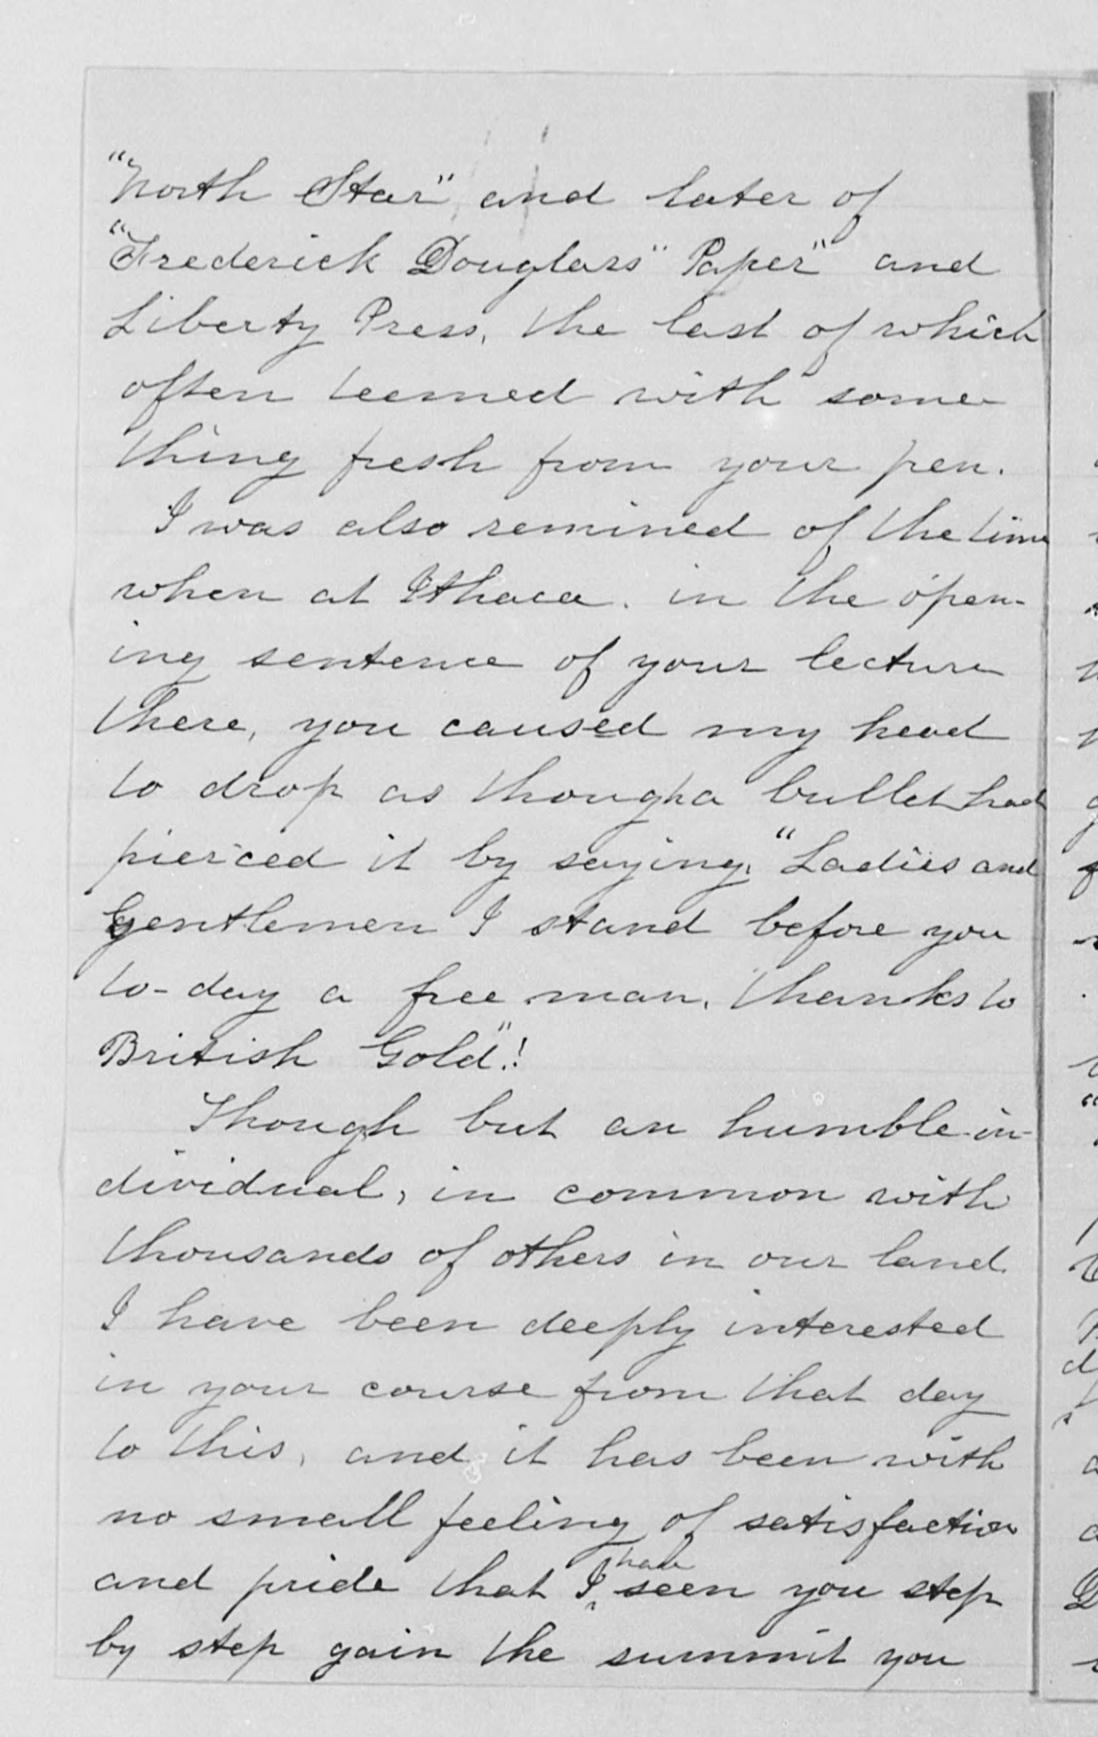 "North Star" and later of
"Frederick Douglass" Paper" and
Liberty Press, the last of which
often teemed with some
thing fresh from your pen.
I was also remined of the time
when at Ithaca. in the open-
ing sentence of your lecture
there, you caused my head
to drop as though a bullet had
pierced it by saying, "Ladies and
Gentlemen I stand before you
to-day a free man, thanks to
British Gold".!
Though but an humble in-
dividual, in common with
thousands of others in our land
I have been deeply interested
in your course from that day
to this, and it has been with
no small feeling of satisfaction
and pride that I have seen you step
by step gain the summit you